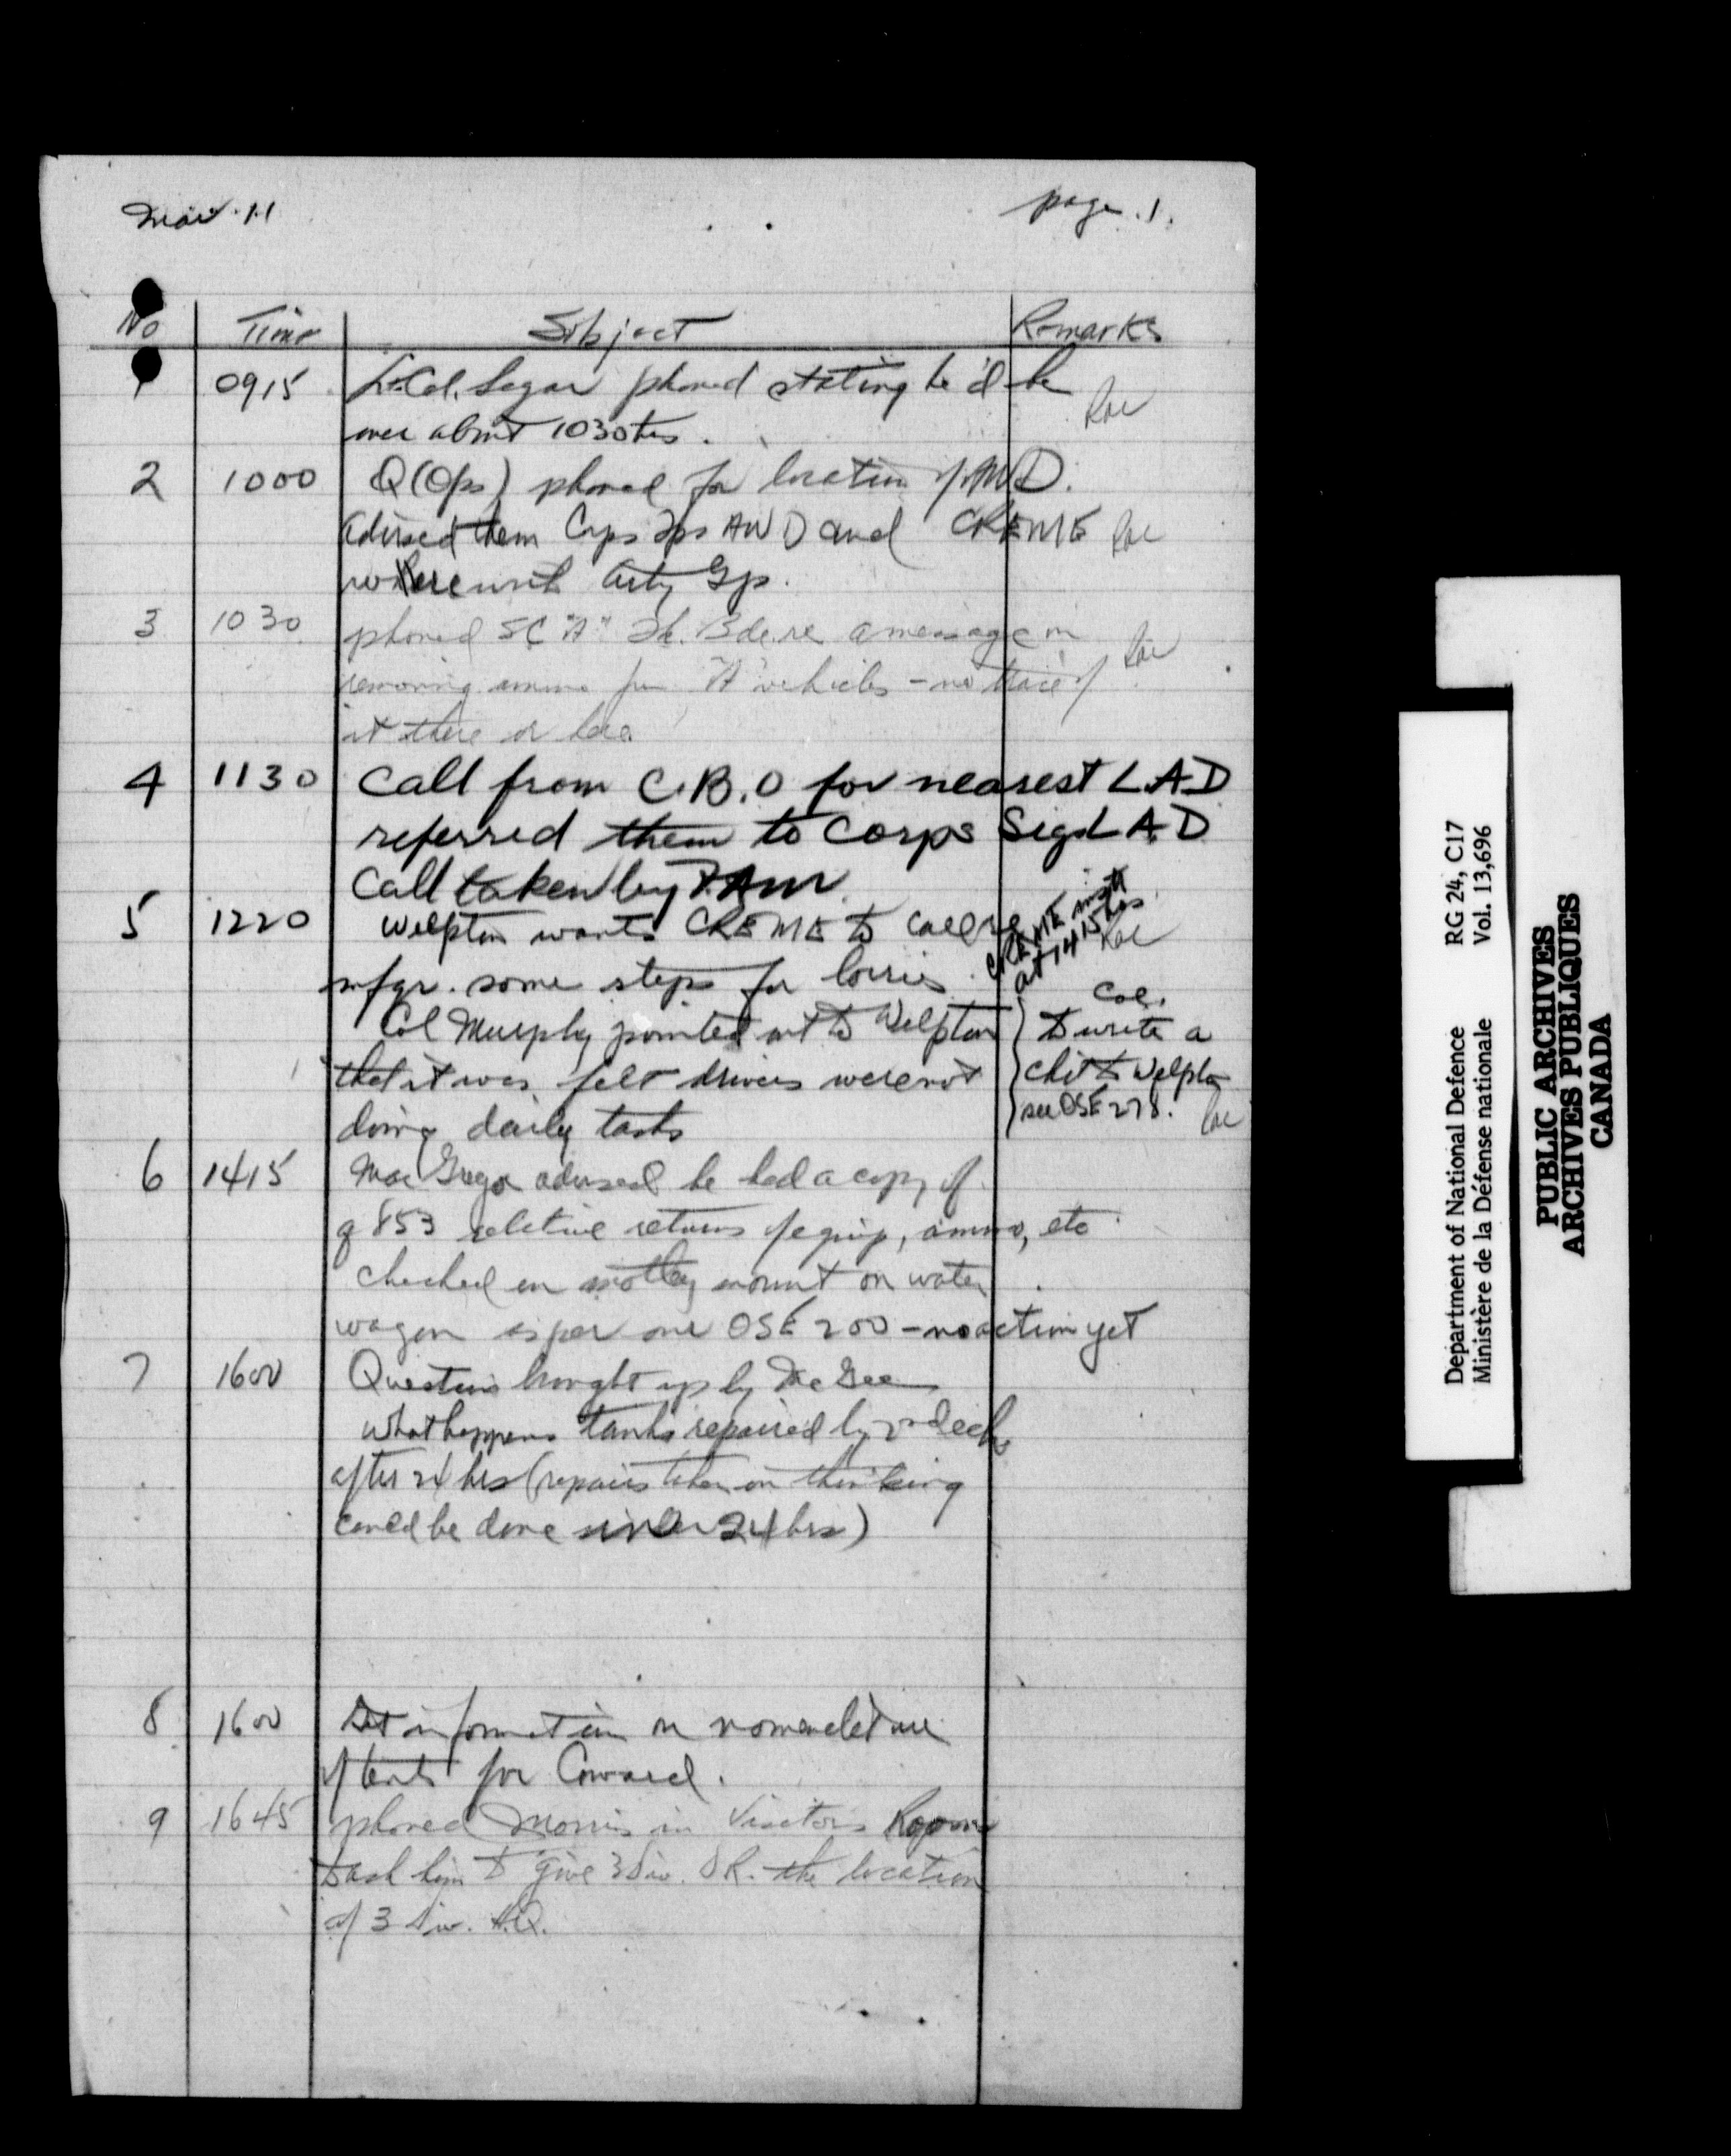 Mar 11
page 1.
No Time Subject Remarks
1 0915 Lt Col. Segar phoned stating he'd be
over about 1030 hrs. Rae
2 1000 Q (Ops) phoned for location of AWD.
advised them Corps Tps AWD and CREME Rae
were with Arty Gp.
3 1030 phoned SC "A" Bde. re a message on
removing ammo fm "A" vehicles - no trace of Rae
it there or here
4 1130 Call from C.B.O for nearest LAD
referred them to Corps Sigs LAD
Call taken by
5 1220 Welpton wants CREME to call re
CREME
at 1415 hrs
Rae
mfgr. some steps for lorries.
Col Murphy pointed out to Welpton
that it was felt drivers were not
doing daily tasks
Col.
to write a
chit to Welpton
see OSE 278. Rae
6 1415 MacGregor advised he had a copy of
Q 853 relative returns of equip, ammo, etc
Checked on motley mount on water
wagon as per our OSE 200 - no action yet
7 1600 Question brought up by McGee
what happens tanks repaired by
after 24 hrs (repairs taken on thinking
could be done under 24 hrs)
8 1600 Get information on nomenclature
of tents for Coward.
9 1645 phoned Morris in Visitors Room
to ask him to give 3 Div. DR. the location
of 3 Div. H.Q.
Department of National Defence RG 24, C17
Ministère de la Défense nationale Vol. 13,696
PUBLIC ARCHIVES
ARCHIVES PUBLIQUES
CANADA